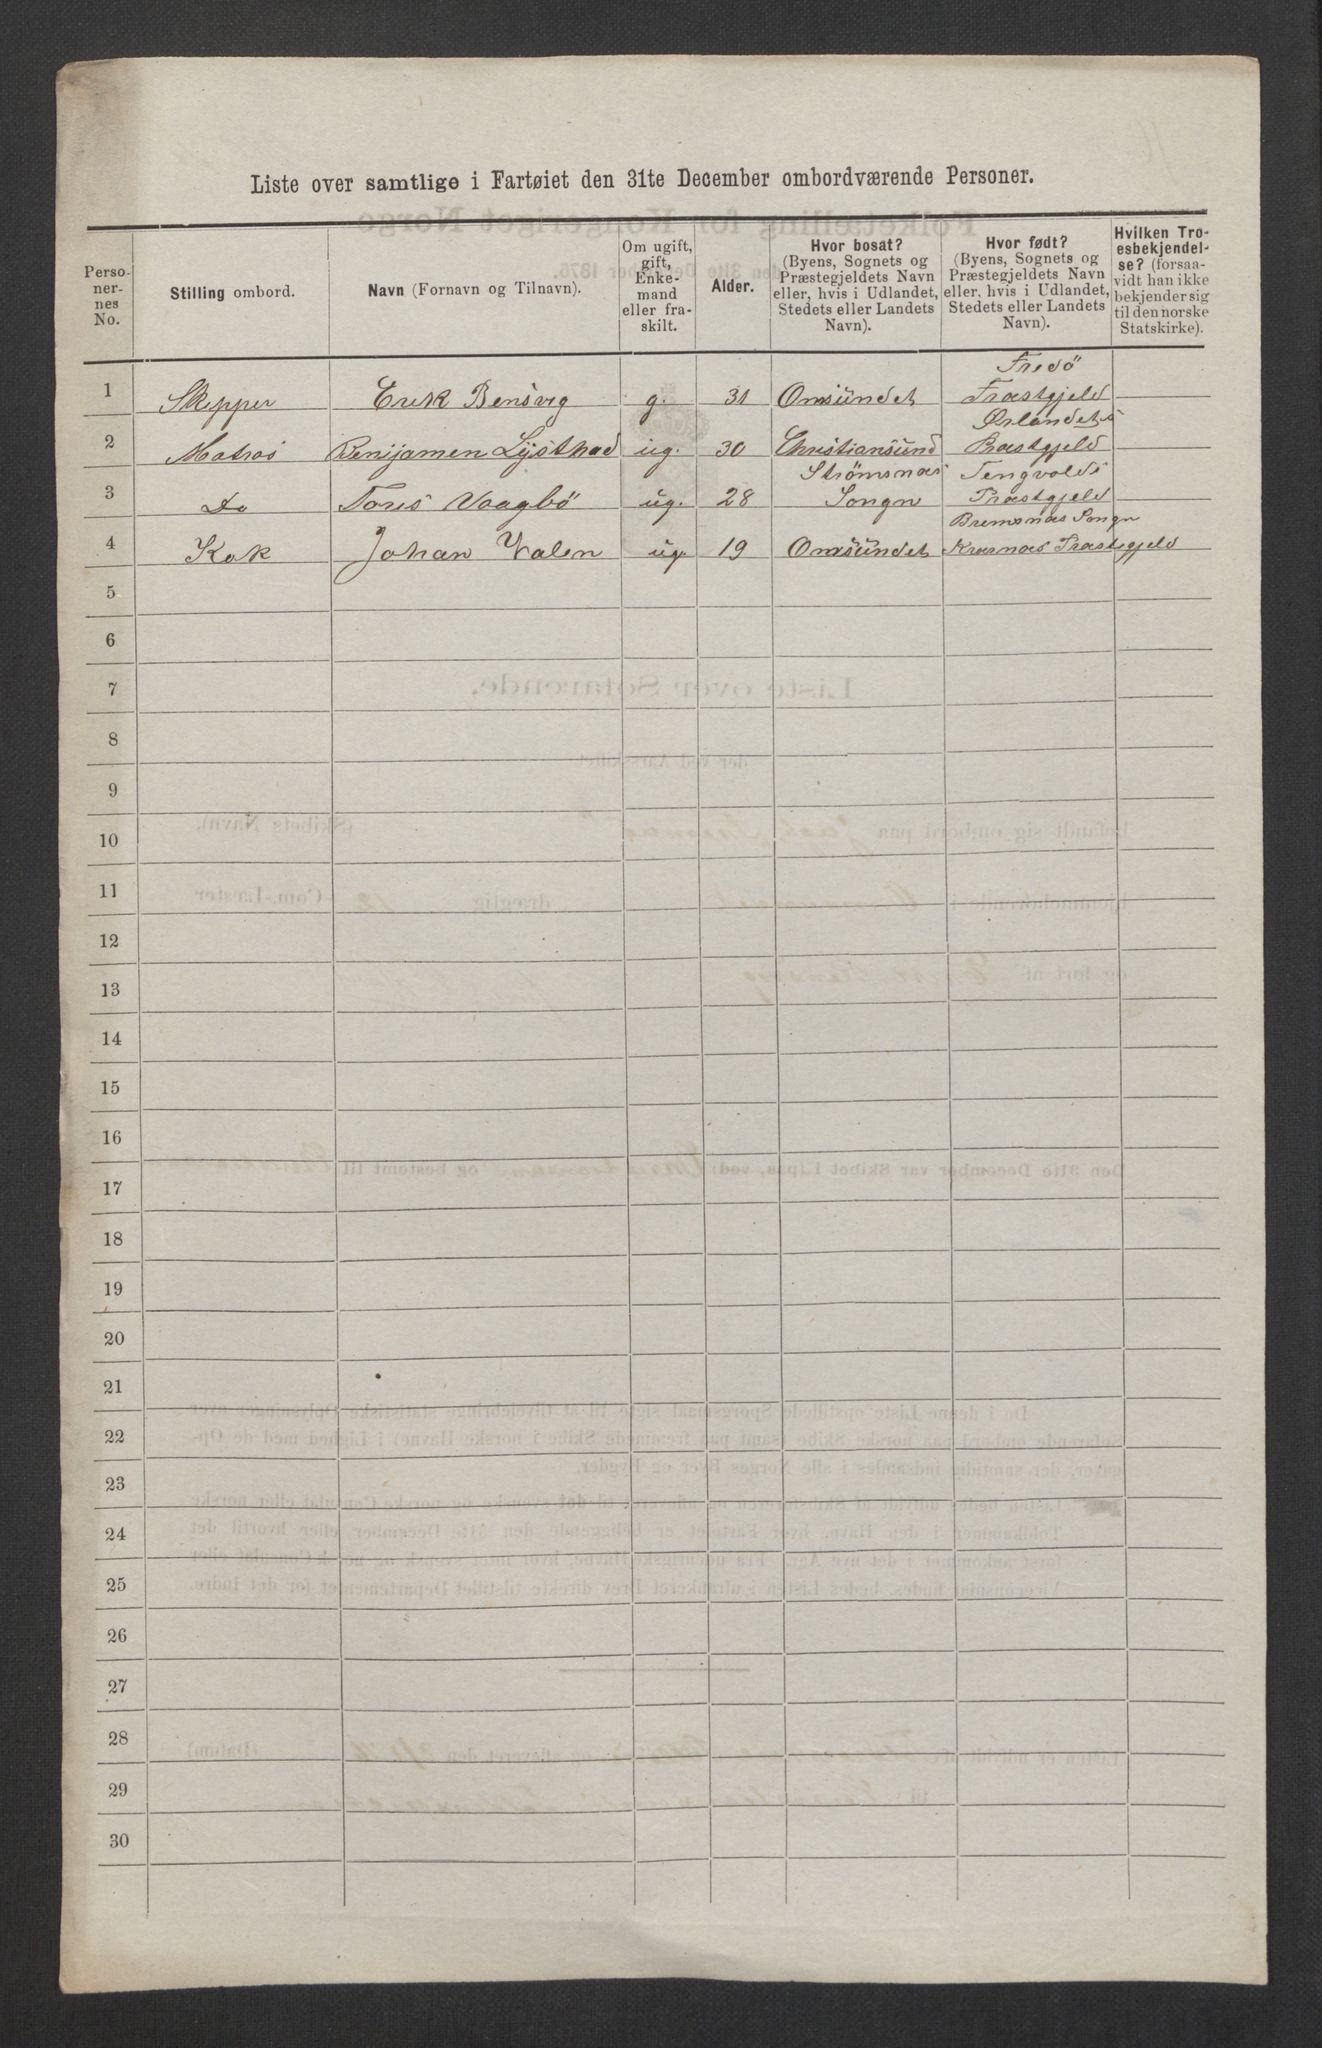 Liste over samtlige i Fartøiet den 31te December ombordværende Personer.
Personernes No. | Stilling ombord. | Navn (Fornavn og Tilnavn). | Om ugift, gift, Enkemand eller fraskilt. | Alder. | Hvor bosat? (Byens, Sognets og Præstegjeldets Navn eller, hvis i Udlandet, Stedets eller Landets Navn). | Hvor født? (Byens, Sognets og Præstegjeldets Navn eller, hvis i Udlandet, Stedets eller Landets Navn). | Hvilken Troesbekjendelse? (forsaavidt han ikke bekjender sig til den norske Statskirke).
1 | Skepper | Erik Bensvig | g. | 31 | Omsundet | Fredö Præstgjeld
2 | Matros | Benijamen Lysthad | ug. | 30 | Christiansund | Ørlandets Præstgjeld
3 | Do | Tores Vaagbö | ug. | 28 | Strømsnæs Songn | Tengvolds Præstgjeld
4 | Kok | Johan Valen | ug. | 19 | Omsundet | Bremsnæs Songn Kværnæs Præstegjeld
5
6
7
8
9
10
11
12
13
14
15
16
17
18
19
20
21
22
23
24
25
26
27
28
29
30